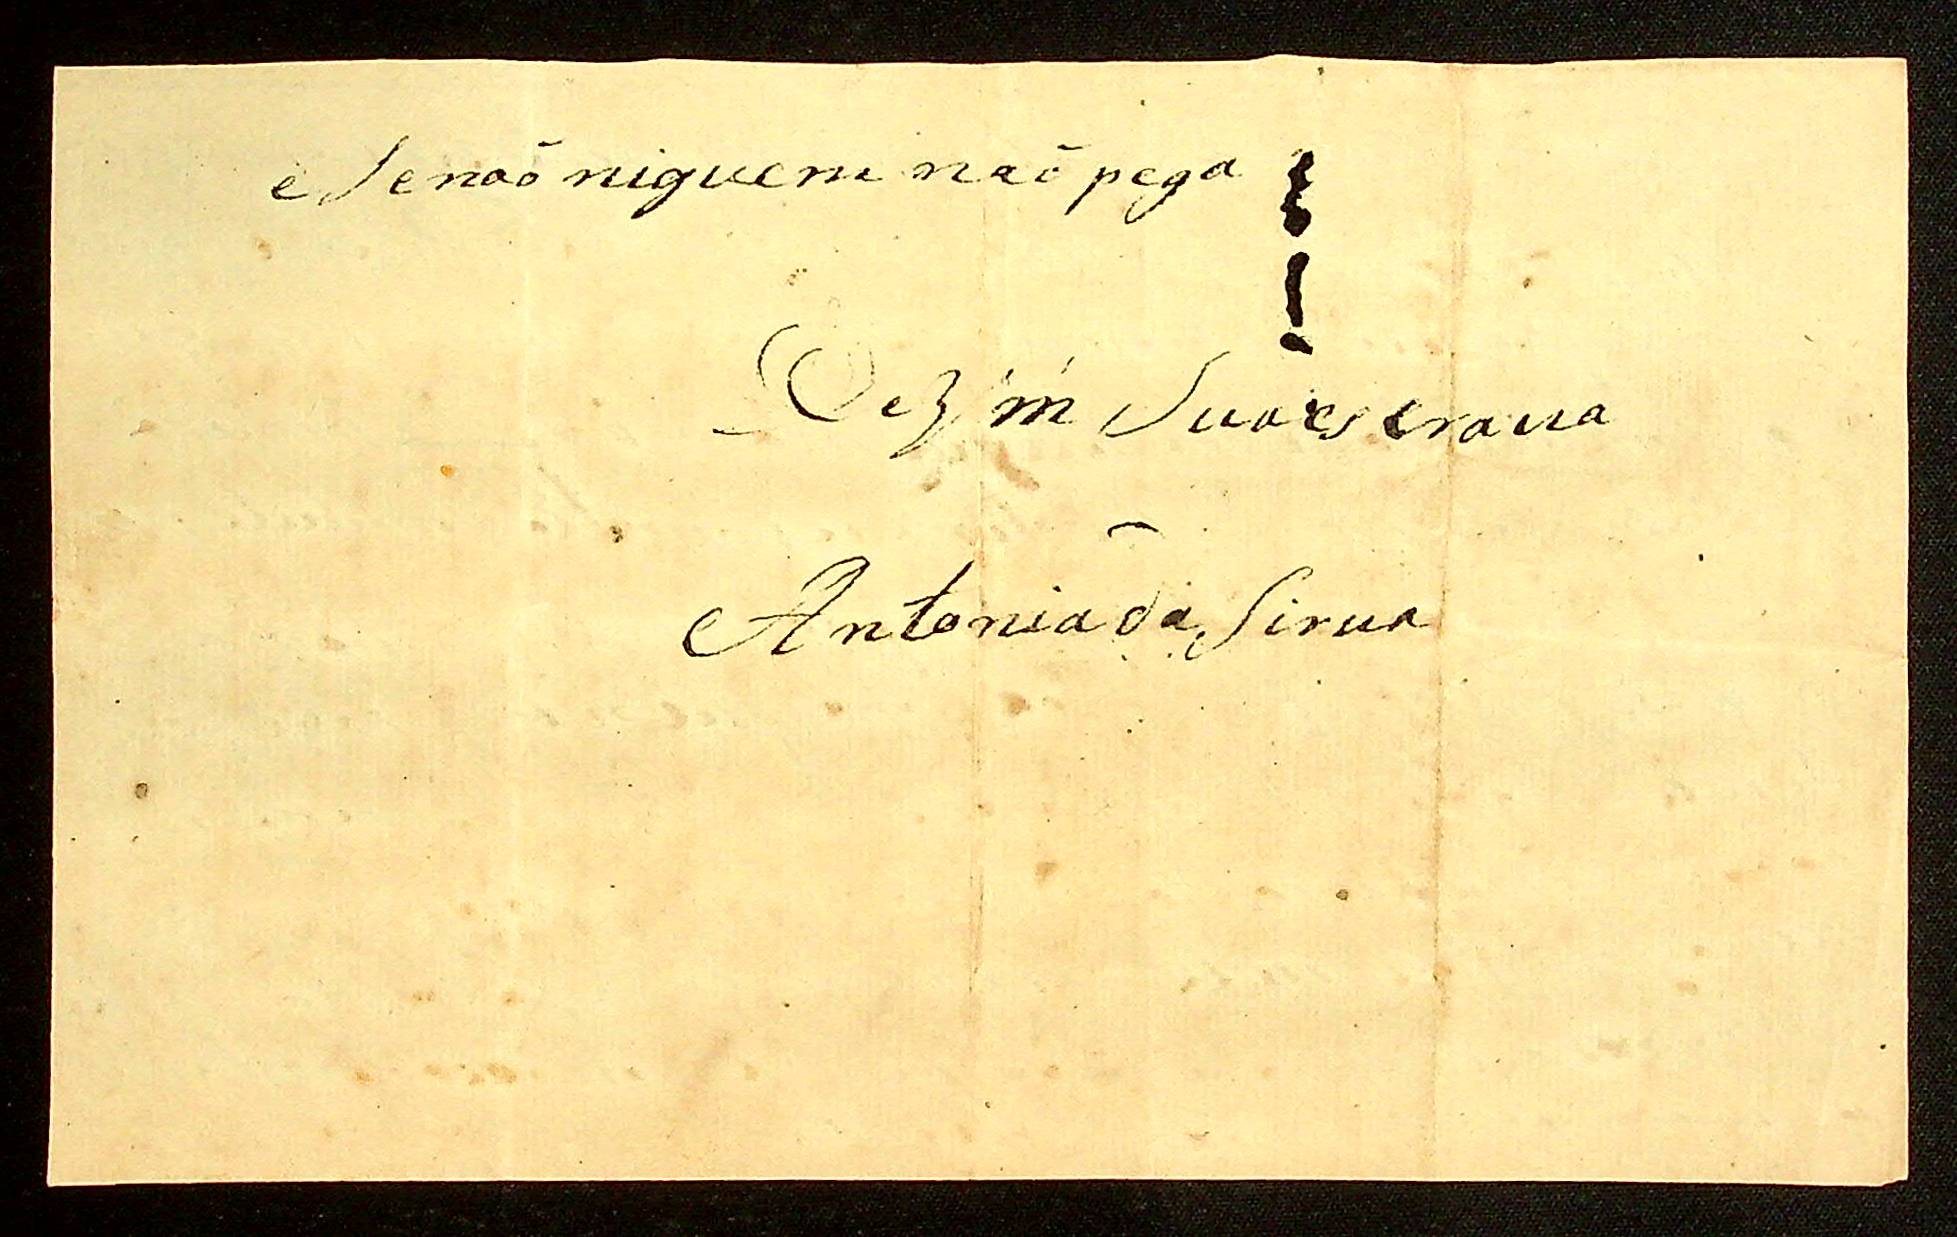 e Senaõ niguem naõ pega
De Vm Sua escraua
Antonia da Sirua